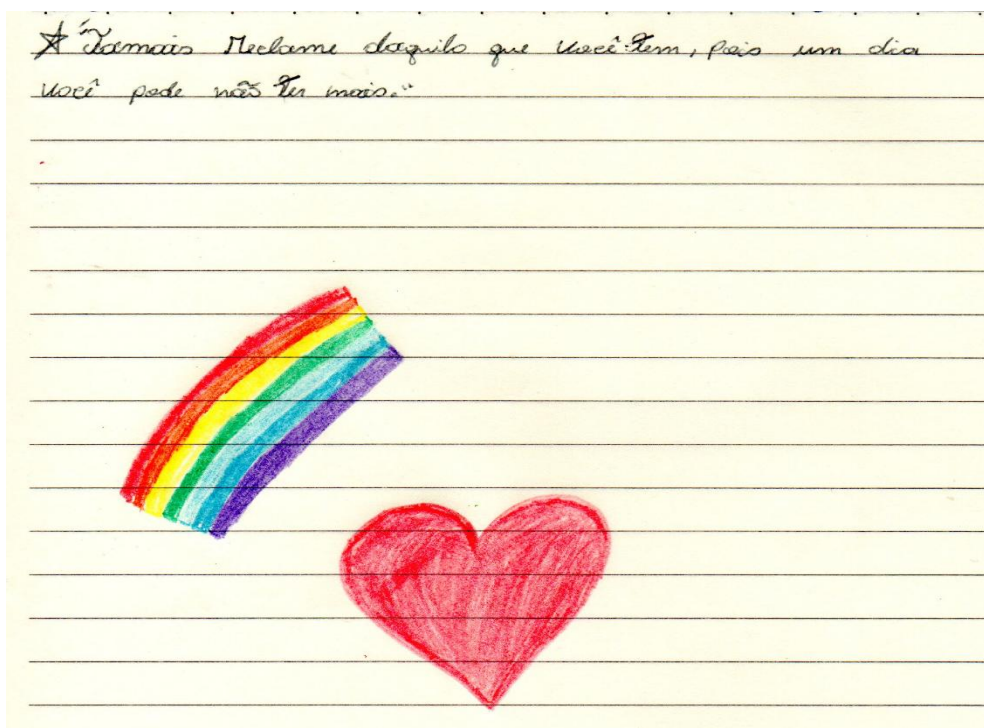 ☆ "Jamais Reclame daquilo que você tem, pois um dia
você pode não ter mais."